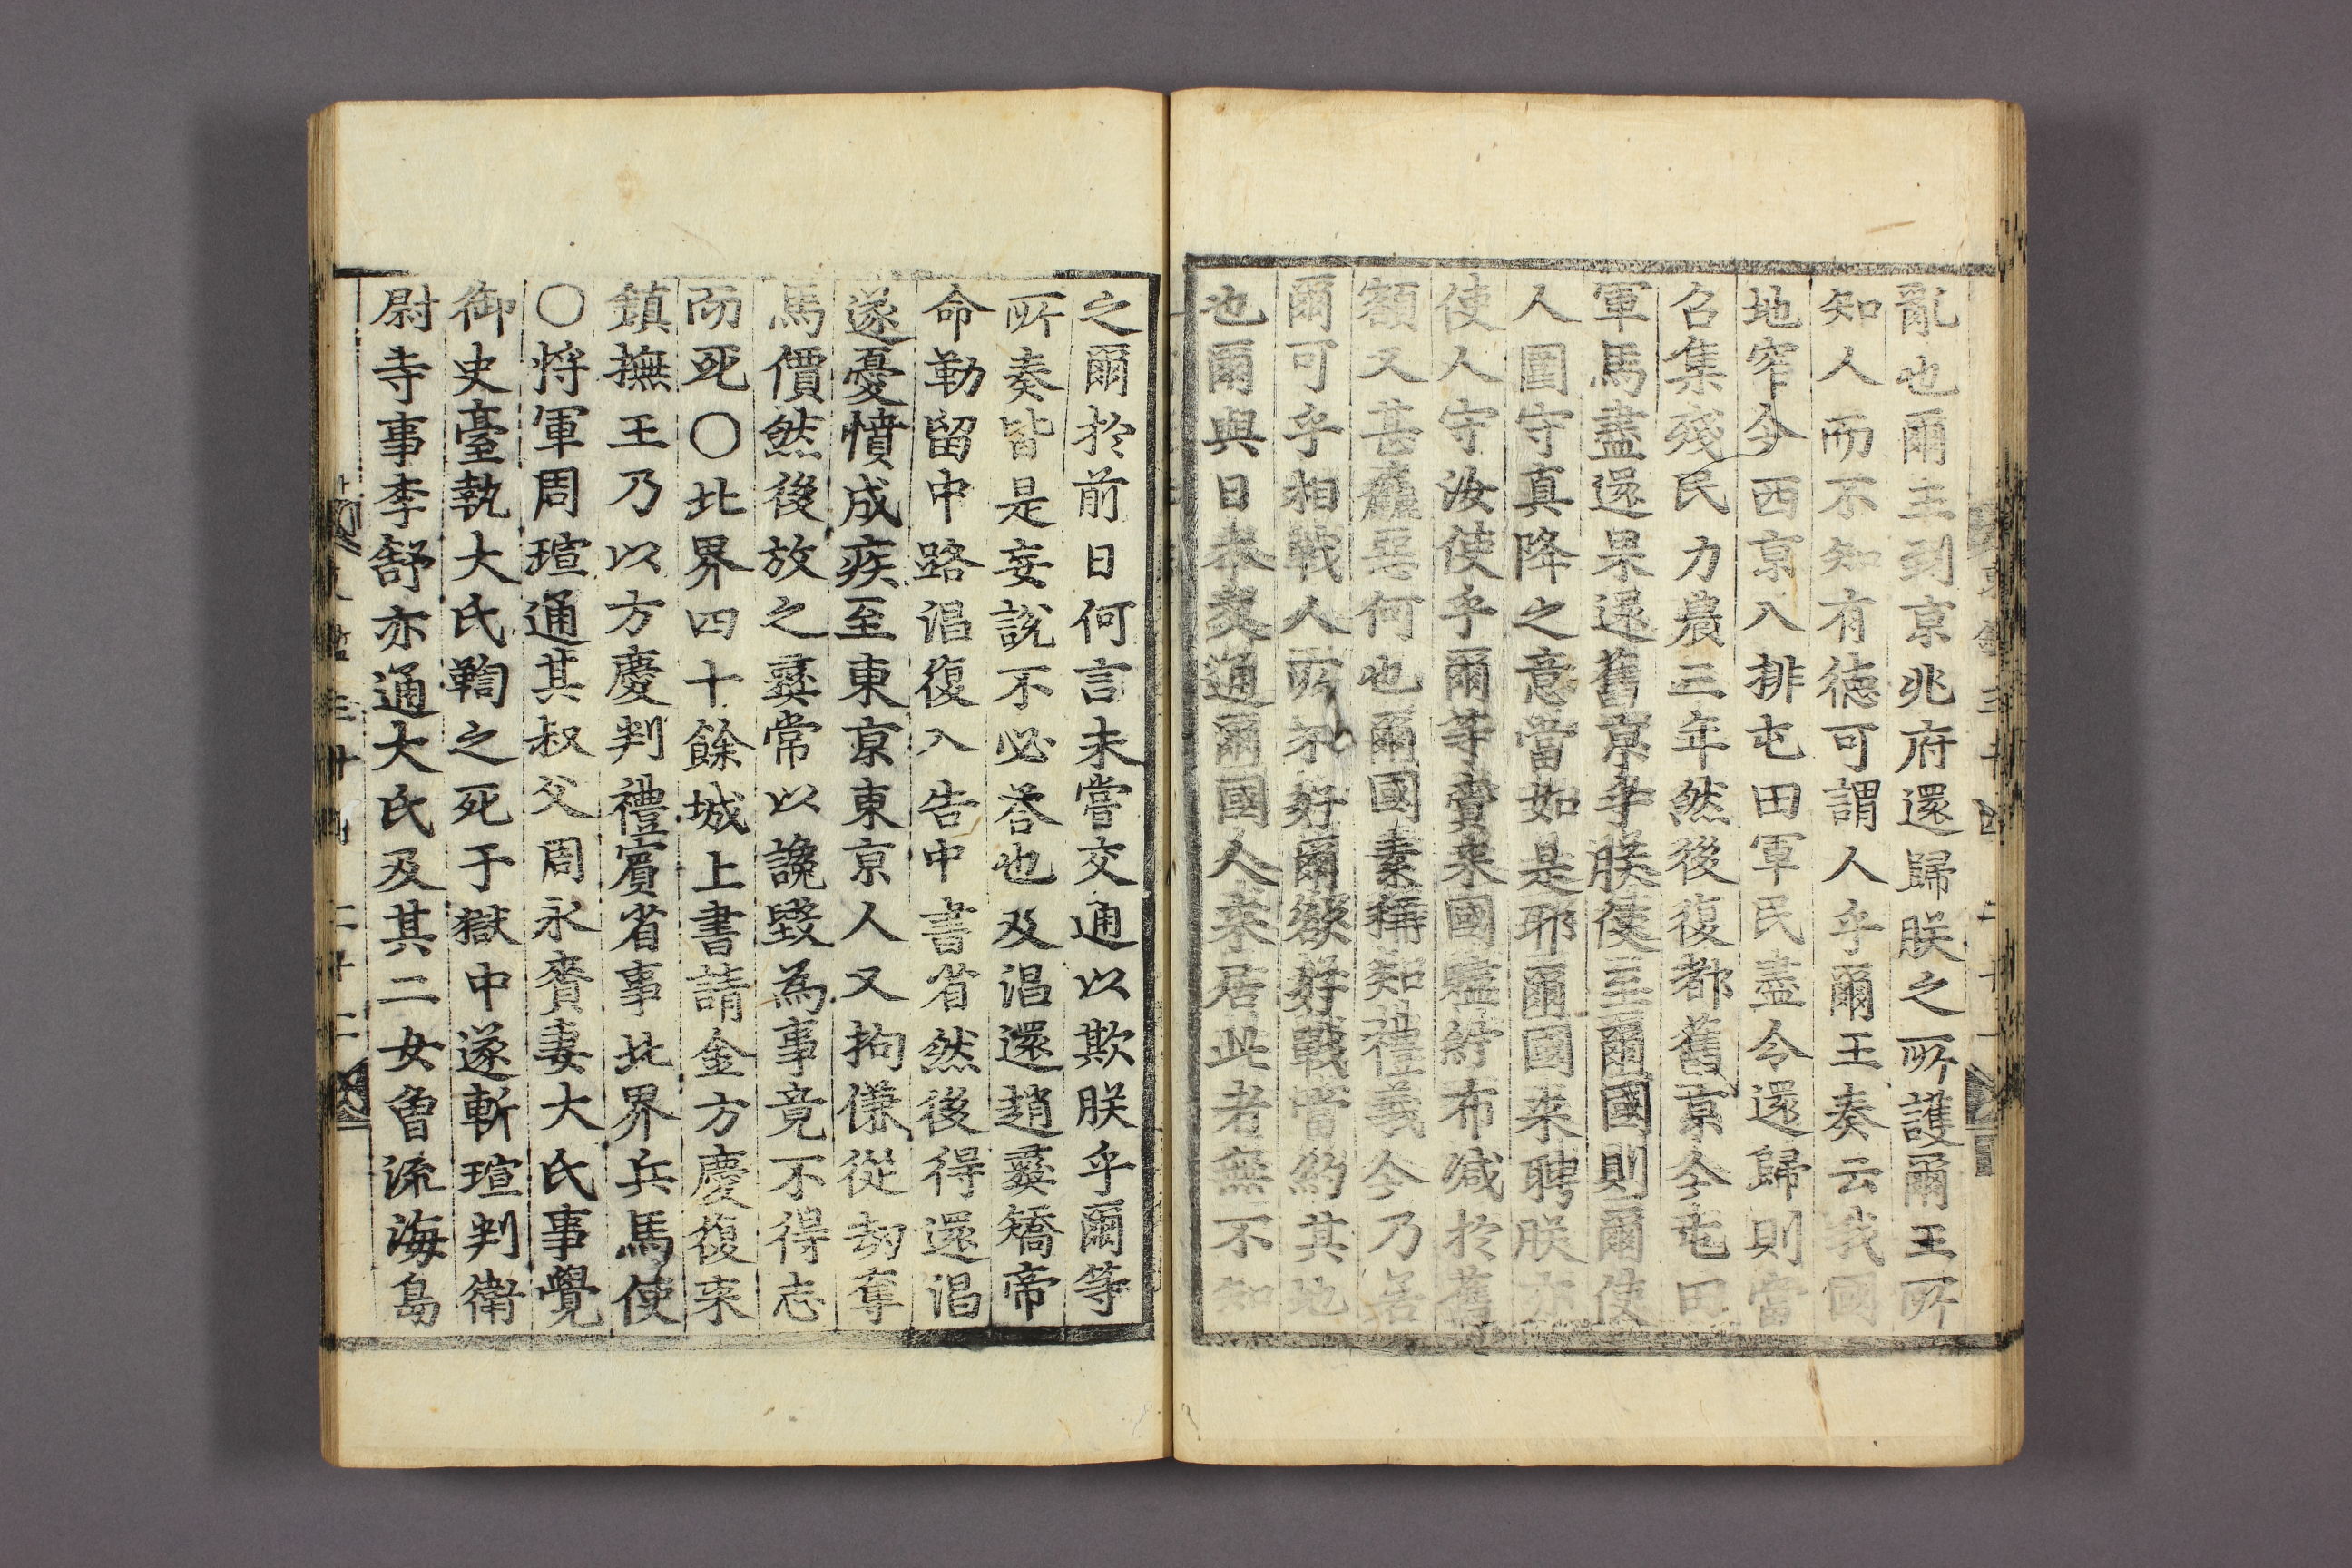 亂也爾主到京兆府還歸朕之所護爾王所
知人而不知有德可謂人乎爾王奏云我國
地窄今西京入排屯田軍民盡令還歸則當
召集殘民力農三年然後復都舊京今屯田
軍馬盡還果還舊京乎朕使至爾國則爾使
人圍守真降之意當如是耶爾國來聘朕亦
使人守汝使乎爾等賚來國贐紵布減於舊
額又甚麤惡何也爾國素稱知禮義今乃若
爾可乎相戰人所不好爾欲好戰當約其地
也爾與日本交通爾國人來居此者無不知
之爾於前日何言未嘗交通以欺朕乎爾等
所奏皆是妄說不必答也及淐還趙彝矯帝
命勒留中路淐復入告中書省然後得還淐
遂憂憤成疾至東京東京人又拘傔從刼奪
馬價然後放之彝常以讒毀為事竟不得志
而死○北界四十餘城上書請金方慶復來
鎮撫王乃以方慶判禮賓省事北界兵馬使
○將軍周瑄通其叔父周永賚妻大氏事覺
御史臺執大氏鞫之死于獄中遂斬瑄判衛
尉寺事李舒亦通大氏及其二女曾流海島